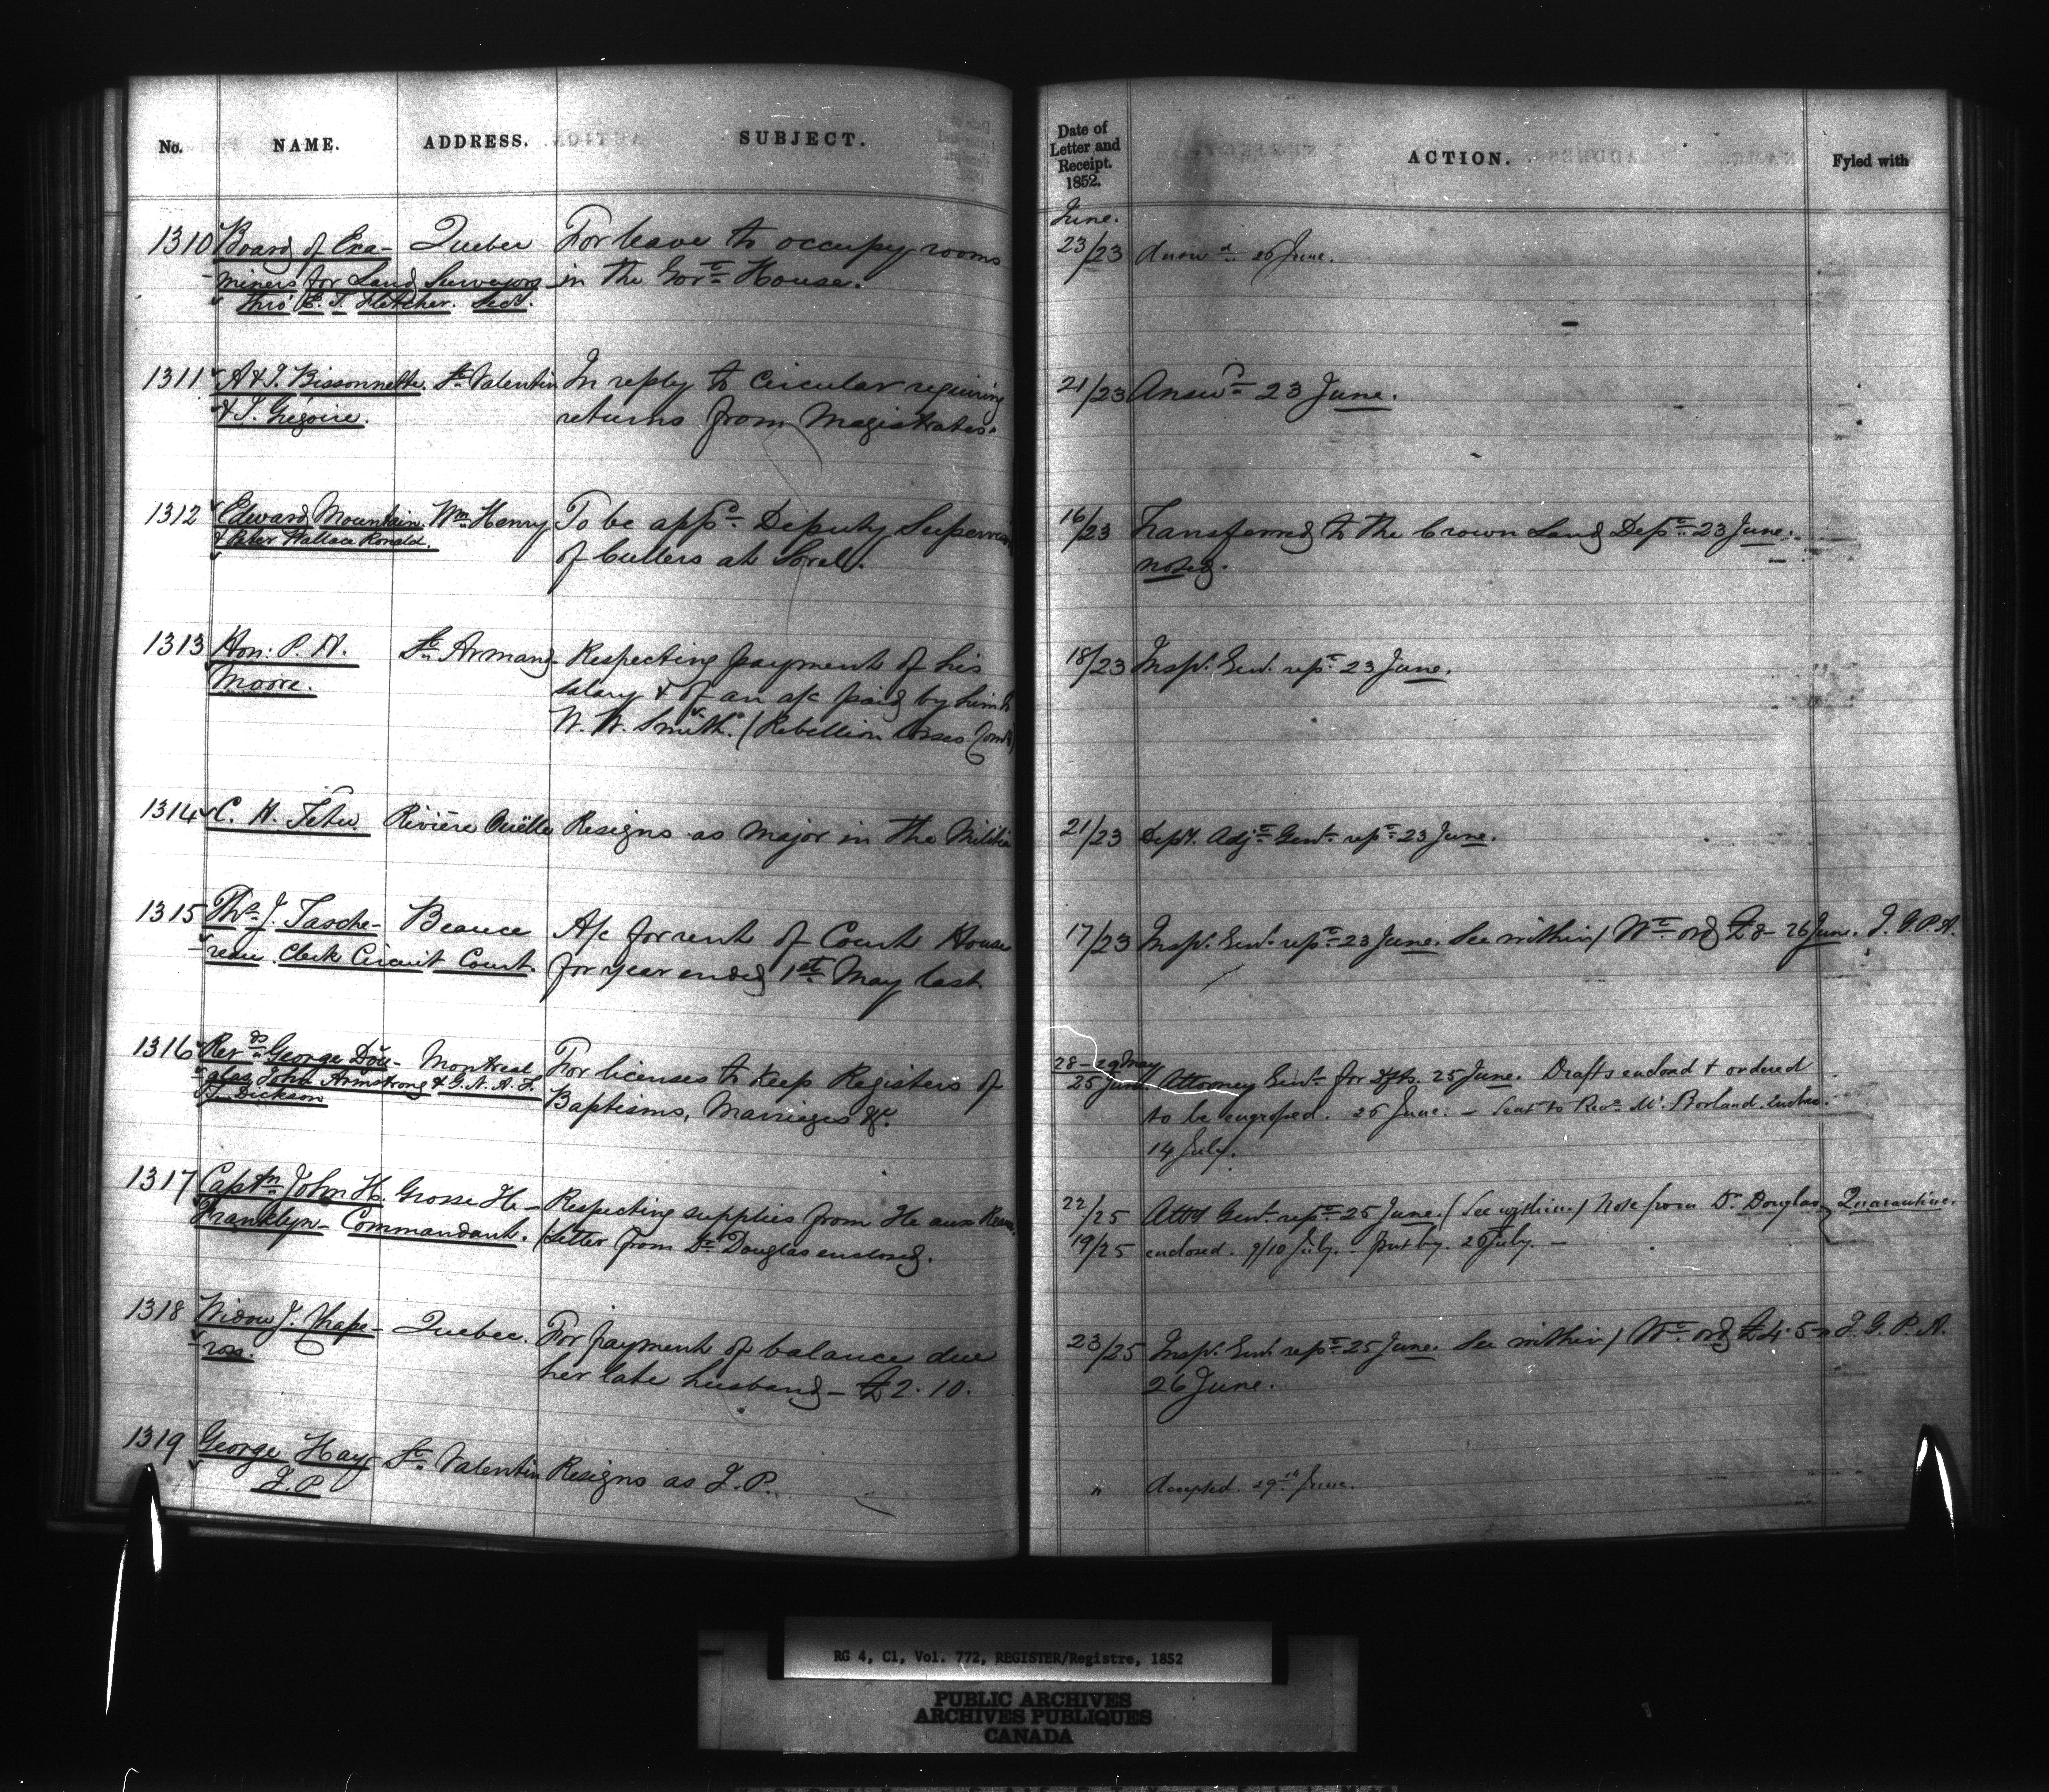 No. NAME. ADDRESS. SUBJECT.
1310 Board of Exa- Quebec For leave to occupy rooms
miners for Land Surveyors in the Govt. House.
thro' E. T. Fletcher. Secy.
1311 A & T. Bissonnette. St. Valentin In reply to Circular requiring
& T. Grégoire. returns from Magistrates.
1312 Edward Mountain Wm. Henry To be appd. Deputy Supervisor
& Peter Wallace Ronald. of Cullers at Sorel.
1313 Hon: P. H. St. Armand Respecting payment of his
Moore. salary & of an a/c paid by him to
W. W. Smith. (Rebellion Losses Comn)
1314 C. H. Tétu. Rivière Ouëlle Resigns as Major in the Militia
1315 Ths. J. Tasche- Beauce A/c for rent of Court House
reau Clerk Circuit Court. for year ended 1st May last.
1316 Revds. George Dou- Montreal For licenses to keep Registers of
glas, John Armstrong & G. N. A. F. Baptisms, Marriages &c.
T. Dickson
1317 Captn. John H. Grosse Ile - Respecting supplies from Ile aux
Franklyn - Commandant. (Letter from Dr. Douglas enclosed.
1318 Widow J. Chape- Quebec. For payment of balance due
ron. her late husband - £2. 10.
1319 George Hay St. Valentin Resigns as J. P.
J. P.
Date of
Letter and
Receipt.
1852.
ACTION. Fyled with
June.
23/23 Answd. 26 June.
21/23 Answd. 23 June.
16/23 Transferred to the Crown Land Dept. 23 June.
noted.
18/23 Insp. Genl. rept. 23 June.
21/23 Depy. Adjt. Genl. rept. 23 June.
17/23 Insp. Genl. rept. 23 June. See within / Wt. ord £8 - 26 June. J. G. P. A.
28 - 29 May
25 June Attorney Genl. for dfts. 25 June. Drafts enclosd & ordered
to be engrossed. 26 June. - Sent to Revd. Mr. Borland. Quebec.
14 July.
22/25 Atty Genl. rept. 25 June. (See within.) Note from Dr. Douglas Quarantine.
19/25 enclosed. 9/10 July. Put by. 26 July. -
23/25 Insp. Genl. rept. 25 June. See within / Wt. ord £4. 5 - J. G. P. A.
26 June.
" Accepted. 29th June.
RG 4, C1, Vol. 772, REGISTER/Registre, 1852
PUBLIC ARCHIVES
ARCHIVES PUBLIQUES
CANADA